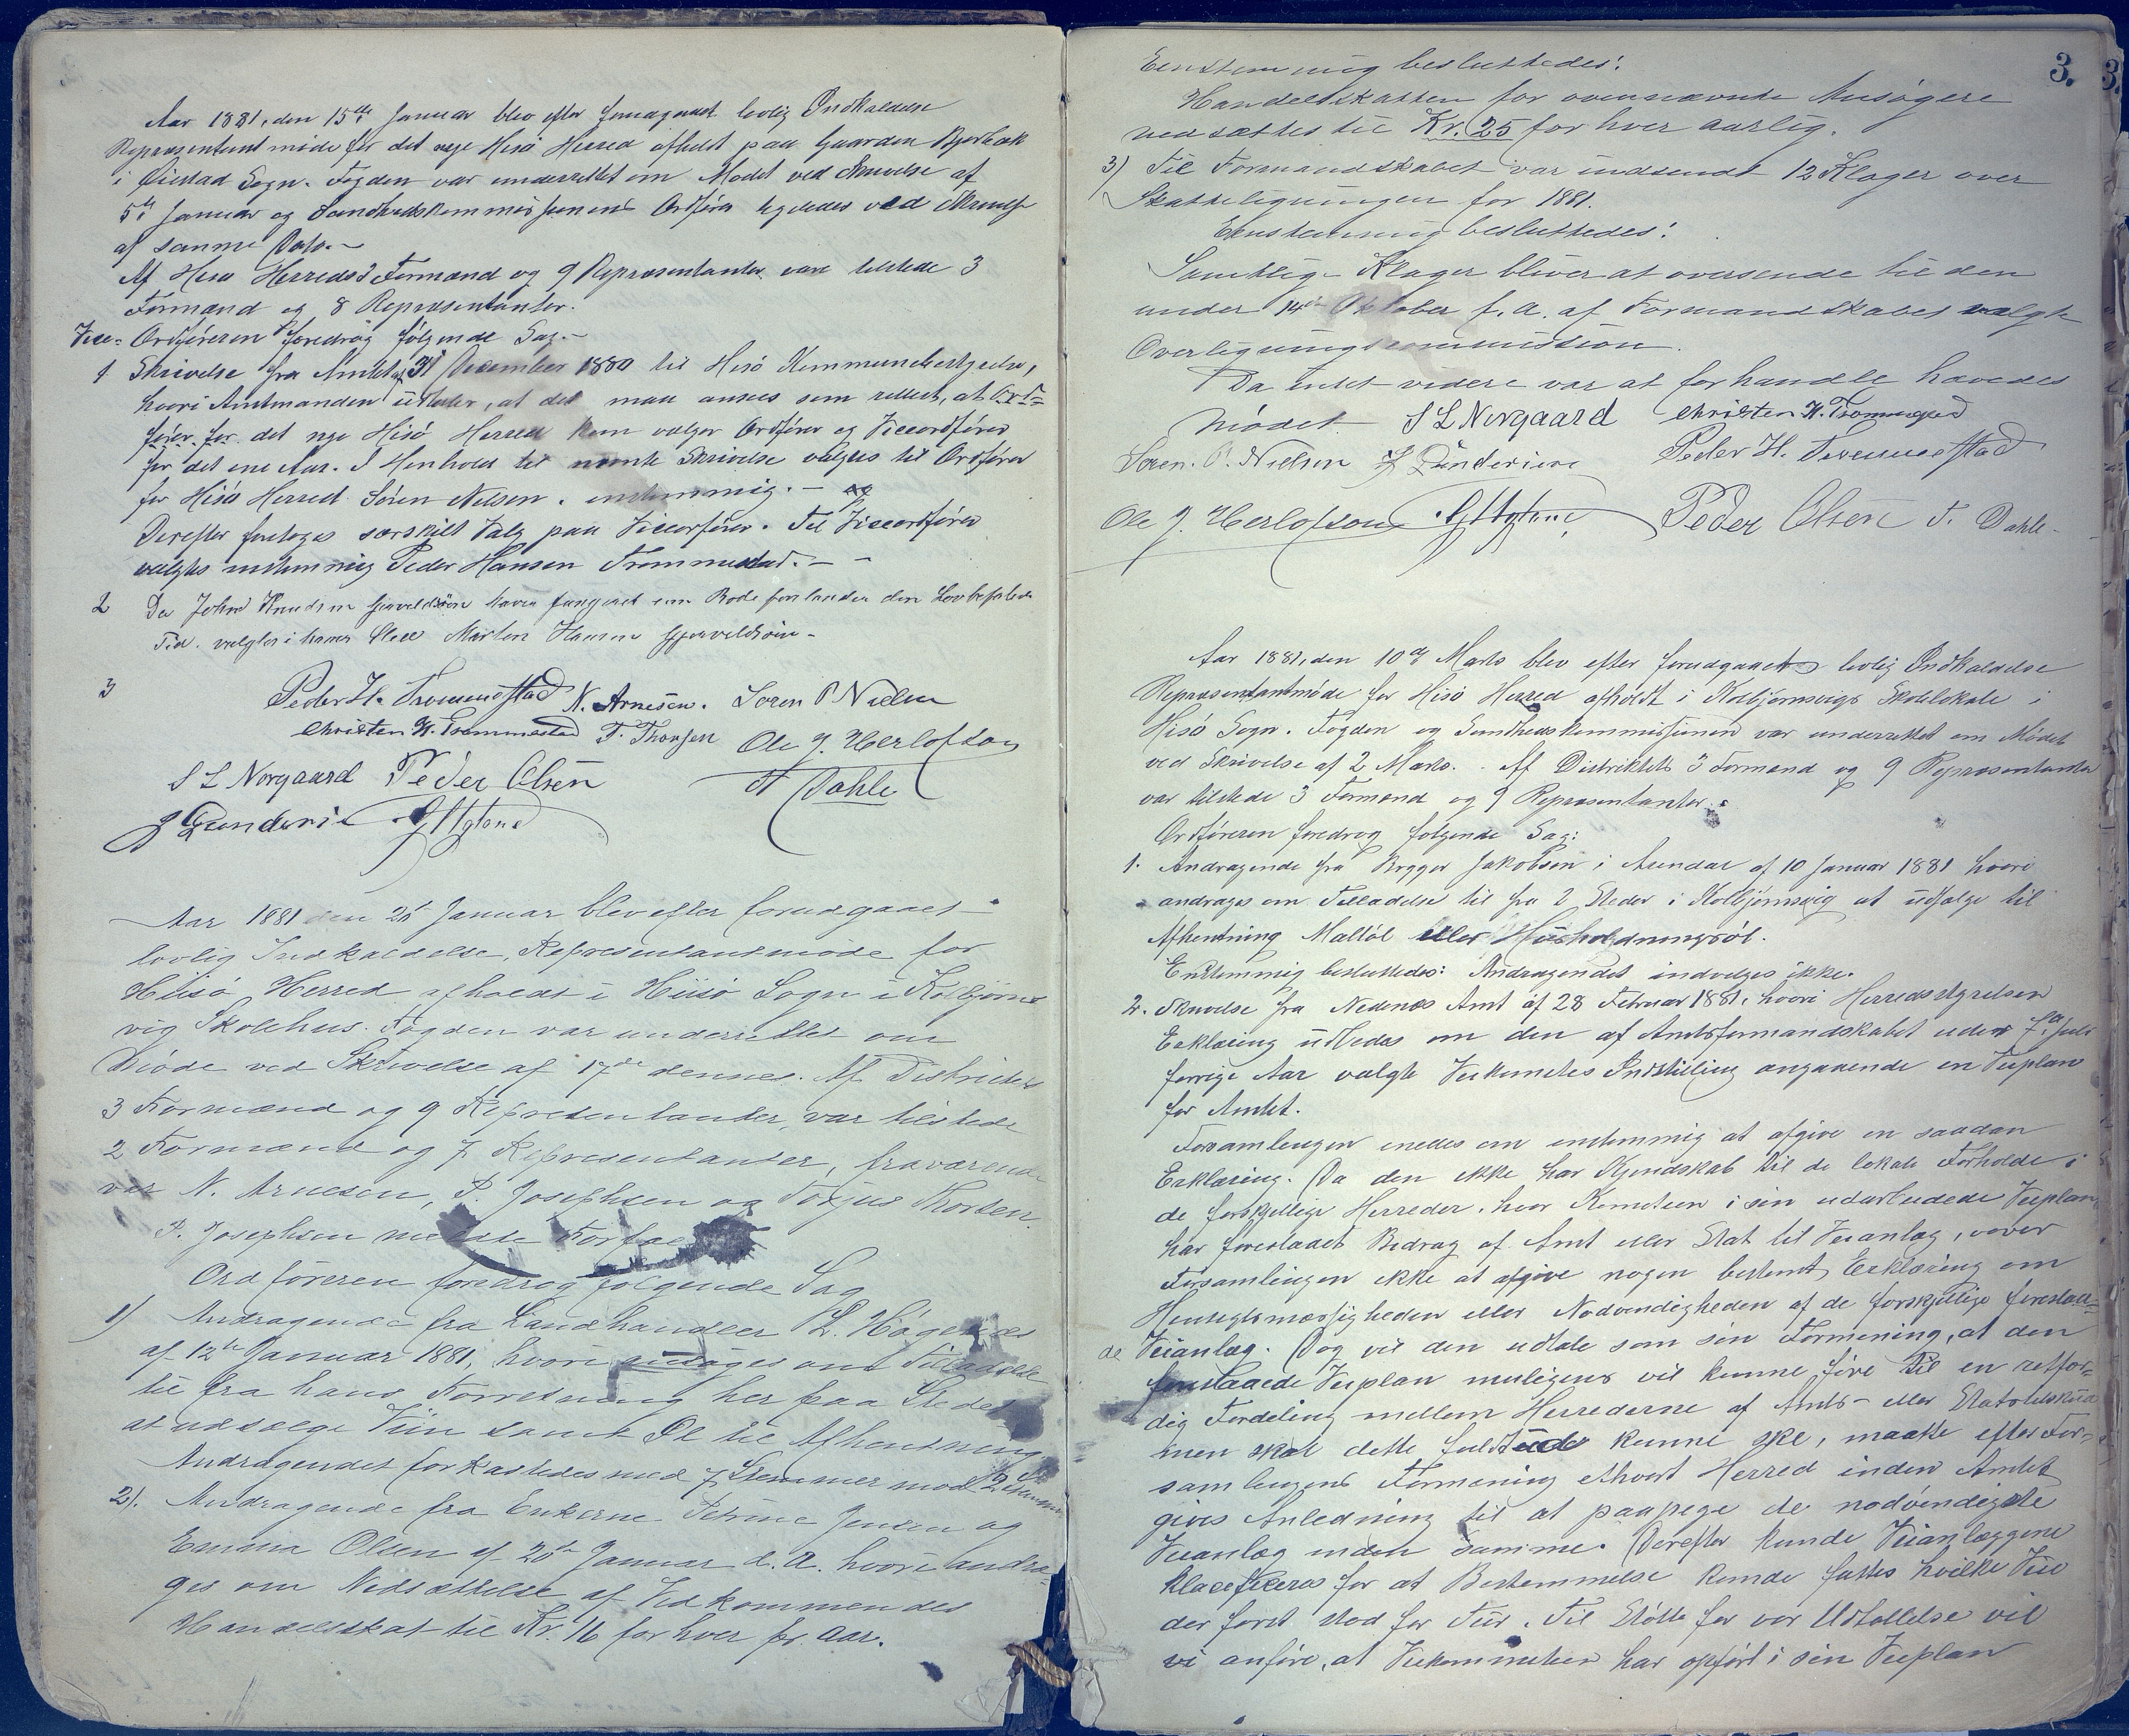 Aar 1881, den 15de Januar blev efter forudgaaet lovlig Indkaldelse
Repræsentantmøde for det nye Hisø Herred afholdt paa Gaarden Bjorbæk
i Øiestad Sogn. Fogden var underrettet om Mødet ved Skrivelse af
5te Januar og Sundhedskommissionens Ordfører ligeledes ved Skrivelse
af samme Dato.-
Af Hisø Herreds 3 Formænd og 9 Repræsentanter vare tilstede 3
Formænd og 8 Repræsentanter.
Vice- Ordføreren foredrog følgende Sag.-
1 Skrivelse fra Amtet af 31 December 1880 til Hisø Kommunebestyrelse,
hvori Amtmanden udtaler, at det maa ansees som rettest, at
for det nye Hisø Herred kun vælger Ordfører og Viceordfører
for det ene Aar. I Henhold til nævnte Skrivelse valgtes til Ordfører
for Hisø Herred Søren Nilsen. enstemmig.-
Derefter foretoges særskilt Valg paa Viceorfører. Til Viceordfører
valgtes enstemmig Peder Hansen Trommestad.- -
2 Da John Knudsen Gjervoldsøen haver fungeret som Rodeforstander den Lovbefalede
Tid. valgtes i hans Sted Morten Hansen Gjervoldsøin-
3 Peder H. Trommestad N. Arnesen. Soren P Nielsen
Christen H. Trommestad T. Thorsen Ole J. Herlofson
S L Norgaard Peder Olsen T Dahle
J Gundersen
Aar 1881 den 26 Januar blev efter forudgaaet
lovlig Indkaldelse, Representantmøde for
Hiisø Herred afholdt i Hiisø Sogn i Kolbjørns
vig Skolehus. Fogden var underrettet om
Møde ved Skrivelse af 17de dennes. Af Districtets
3 Formænd og 9 Representanter, var tilstede
2 Formænd og 7 Representanter, fraværende
var N. Arnesen, P. Josephsen og Torjus Thorsen.
P. Josephsen meldte Forfald
Ordføreren foredrog følgende Sag
1) Andragende fra Landhandler L. Høgenæs
af 12te Januar 1881, hvori ansøges om Tilladelse
til fra hans Forretning her paa Stedet
at udsælge Viin samt Øl til Afhentning
Andragendet forkastedes med 7 Stemmer mod 2 Stemmer
2). Andragende fra Enkerne Petrine Jensen og
Emma Olsen af 20de Januar d. A. hvori andra-
ges om Nedsættelse af Vedkommendes
Handelsskat til Kr. 16 for hver pr. Aar.
3.
Eenstemmig besluttedes:
Handelsskatten for ovennævnte Ansøgere
nedsættes til Kr. 25 for hver aarlig.
3) Til Formandskabet var indsendt 12 Klager over
Skatteligningen for 1881.
Eenstemmig besluttedes:
Samtlige Klager bliver at oversende til den
under 14de Oktober f. A. af Formandskabet valgte
Overligningscommission.
Da intet videre var at forhandle hævedes
Mødet. S L Norgaard Christen H. Trommestad
Søren. P. Nielsen J Gundersen Peder H. Trommestad
Ole J. Herlofson Peder Olsen T. Dahle-
Aar 1881, den 10de Marts blev efter forudgaaet lovlig Indkaldelse
Repræsentantmøde for Hisø Herred afholdt i Kolbjørnsvigs Skolelokale i
Hisø Sogn. Fogden og Sundhedskommissionen var underrettet om Mødet
ved Skrivelse af 2 Marts. Af Distriktets 3 Formænd og 9 Repræsentanter
var tilstede 3 Formænd og 9 Repræsentanter.
Ordføreren foredrog følgende Sag:
1. Andragende fra Brygger Jakobsen i Arendal af 10 Januar 1881 hvori
andrages om Tilladelse til fra 2 Steder i Kolbjørnsvig at udsælge til
Afhentning Maltøl eller Husholdningsøl.
Enstemmig besluttedes: Andragendet indvelges ikke.
2. Skrivelse fra Nedenæs Amt af 28 Februar 1881, hvori Herredsstyrelsen
Erklæring udbedes om den af Amtsformandskabet under 7de Juli
forrige Aar valgte Veikomites Indstilling angaaende en Veiplan
for Amtet.
Forsamlingen enedes om enstemmig at afgive en saadan
Erklæring. Da den ikke har Kjendskab til de lokale Forholde i
de forskjellige Herreder, hvor Komiteen i sin udarbeidede Veiplan
har foreslaaet Bidrag af Amt eller Stat til Veianlæg, vover
Forsamlingen ikke at afgive nogen bestemt Erklæring om
Hensigtsmæssigheden eller Nødvendigheden af de forskjellige foreslaa-
de Veianlæg. Dog vil den udtale som sin Formening, at den
foreslaaede Veiplan muligens vil kunne føre til en retfær-
dig Fordeling mellem Herrederne af Amts- eller Statstilskud
men skal dette fuldt ud kunne ske, maatte efter For-
samlingens Formening ethvert Herred inden Amtet
gives Anledning til at paapege de nødvendigste
Veianlæg inden samme. Derefter kunde Veianlæggene
klassificeres for at Bestemmelse kunde fattes hvilke Veie
der først stod for Tur. Til Støtte for vor Udtallelse vil
vi anføre, at Veikommiteen har opført i sin Veiplan